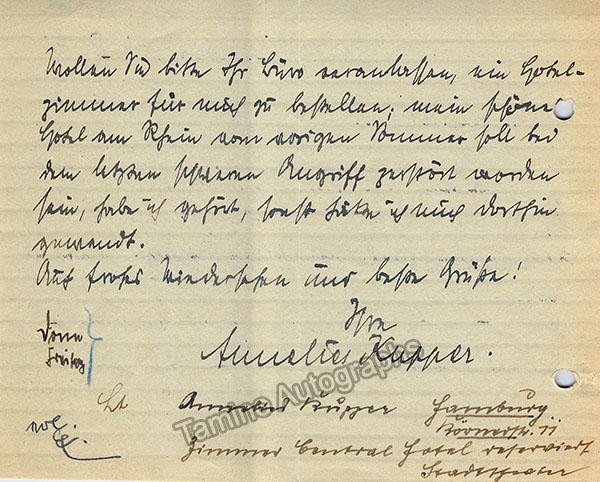 Wollen Sie bitte Ihr Büro veranlassen, ein Hotel-
zimmer für mich zu bestellen; mein schönes
Hotel am Rhein vom vorigen Sommer soll bei
dem letzten schweren Angriff zerstört worden
sein, habe ich gehört, sonst hätte ich mich dorthin
gewandt.
Auf frohes Wiedersehen und beste Grüße!
Ihre
Annelies Kupper.
Annelies Kupper Hamburg
Körnerstr. 11
Zimmer Central Hotel reserviert
Stadttheater
Tamino Autographs